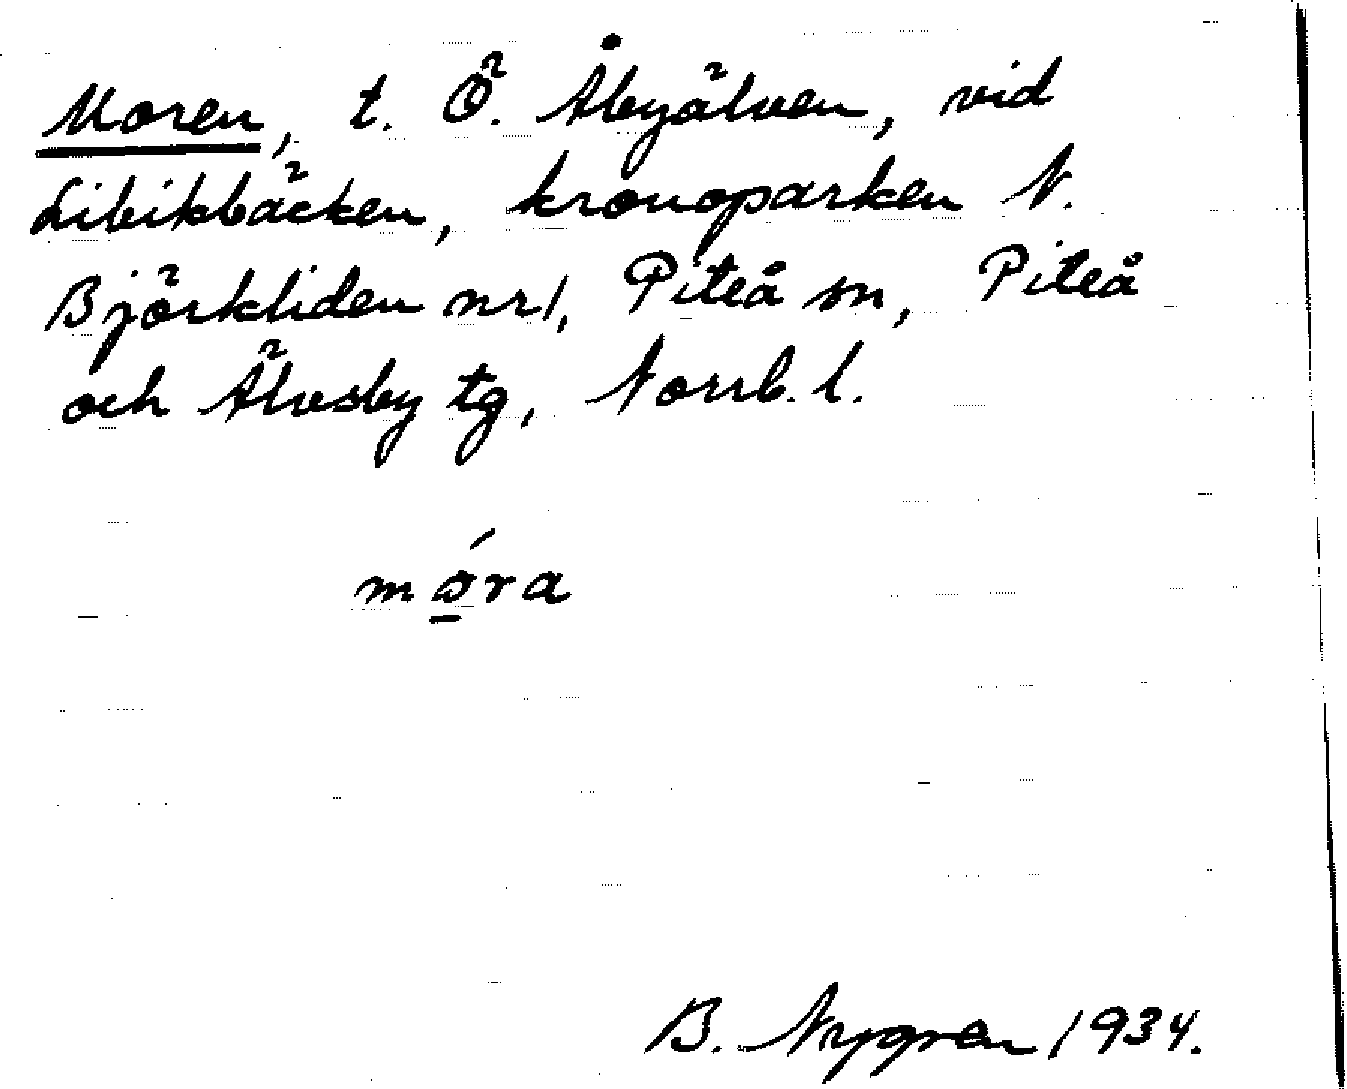 Moren, t. Ö. Åbyälven, vid
Libikbäcken, kronoparken N.
Björkliden nr 1, Piteå sn, Piteå
och Älvsby tg, Norrb. l.
B. Nygren 1934.